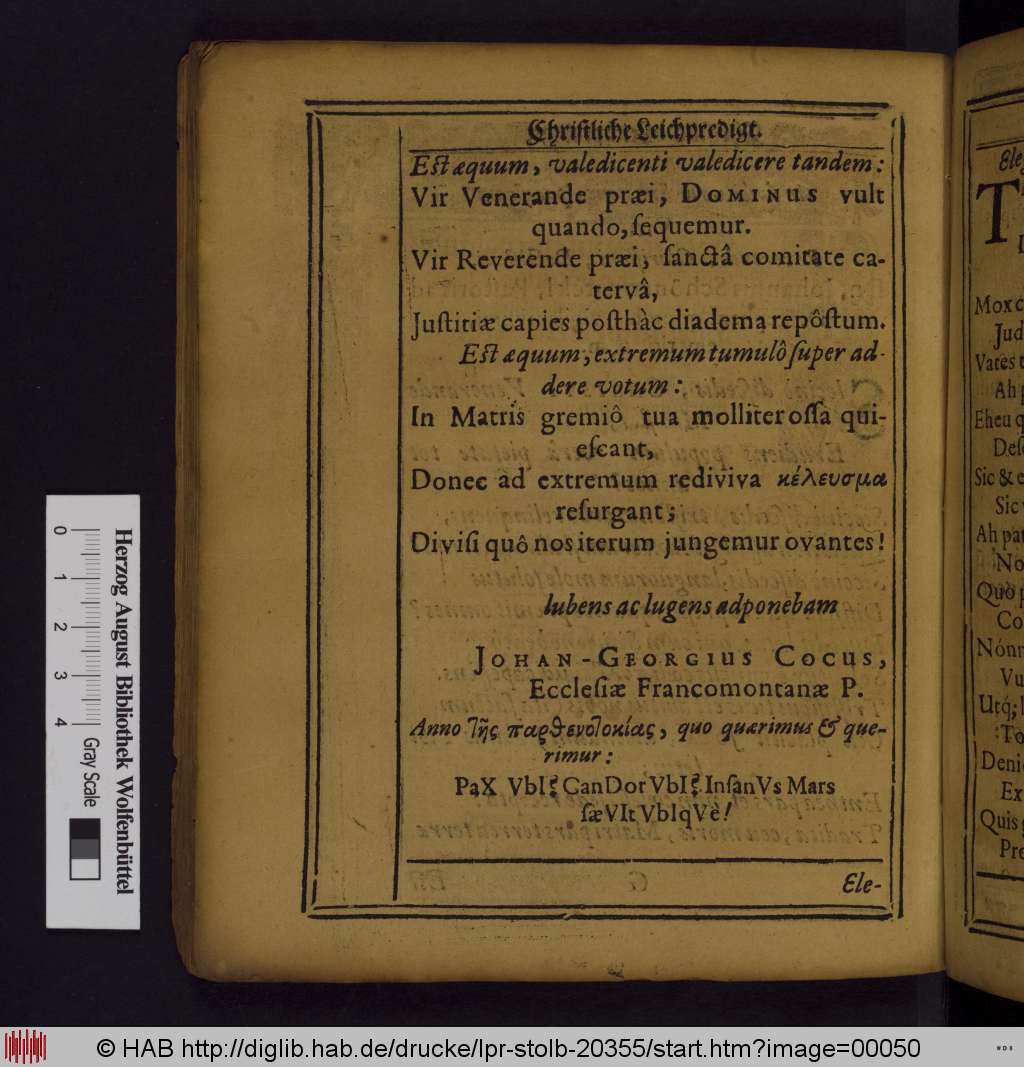 Christliche Leichpredigt.
Est æquum, valedicenti valedicere tandem:
Vir Venerande præi, DOMINUS vult
quando, ſequemur.
Vir Reverende præi, ſanctâ comitate ca-
tervâ,
Juſtitiæ capies poſthàc diadema repôſtum.
Est æquum, extremum tumulô ſuper ad-
dere votum:
In Matris gremiô tua molliter oſſa qui-
eſcant,
Donec ad extremum rediviva κέλευσμα
reſurgant;
Diviſi quô nos iterum jungemur ovantes!
lubens ac lugens adponebam
JOHAN-GEORGIUS COCUS,
Eccleſiæ Francomontanæ P.
Anno τῆς παρθενοτοκίας, quo quærimus & que-
rimur:
PaX VbI? CanDor VbI? InſanVs Mars
ſæVIt VbIqVè!
Ele-
Ele
T
Mox c
Jud
Vates t
Ah p
Eheu q
Deſ
Sic & e
Sic
Ah pat
No
Quò p
Co
Nónn
Vu
Utq; l
To
Deni
Ex
Quis
Pre
0 1 2 3 4
Gray Scale
Herzog August Bibliothek Wolfenbüttel
© HAB http://diglib.hab.de/drucke/lpr-stolb-20355/start.htm?image=00050